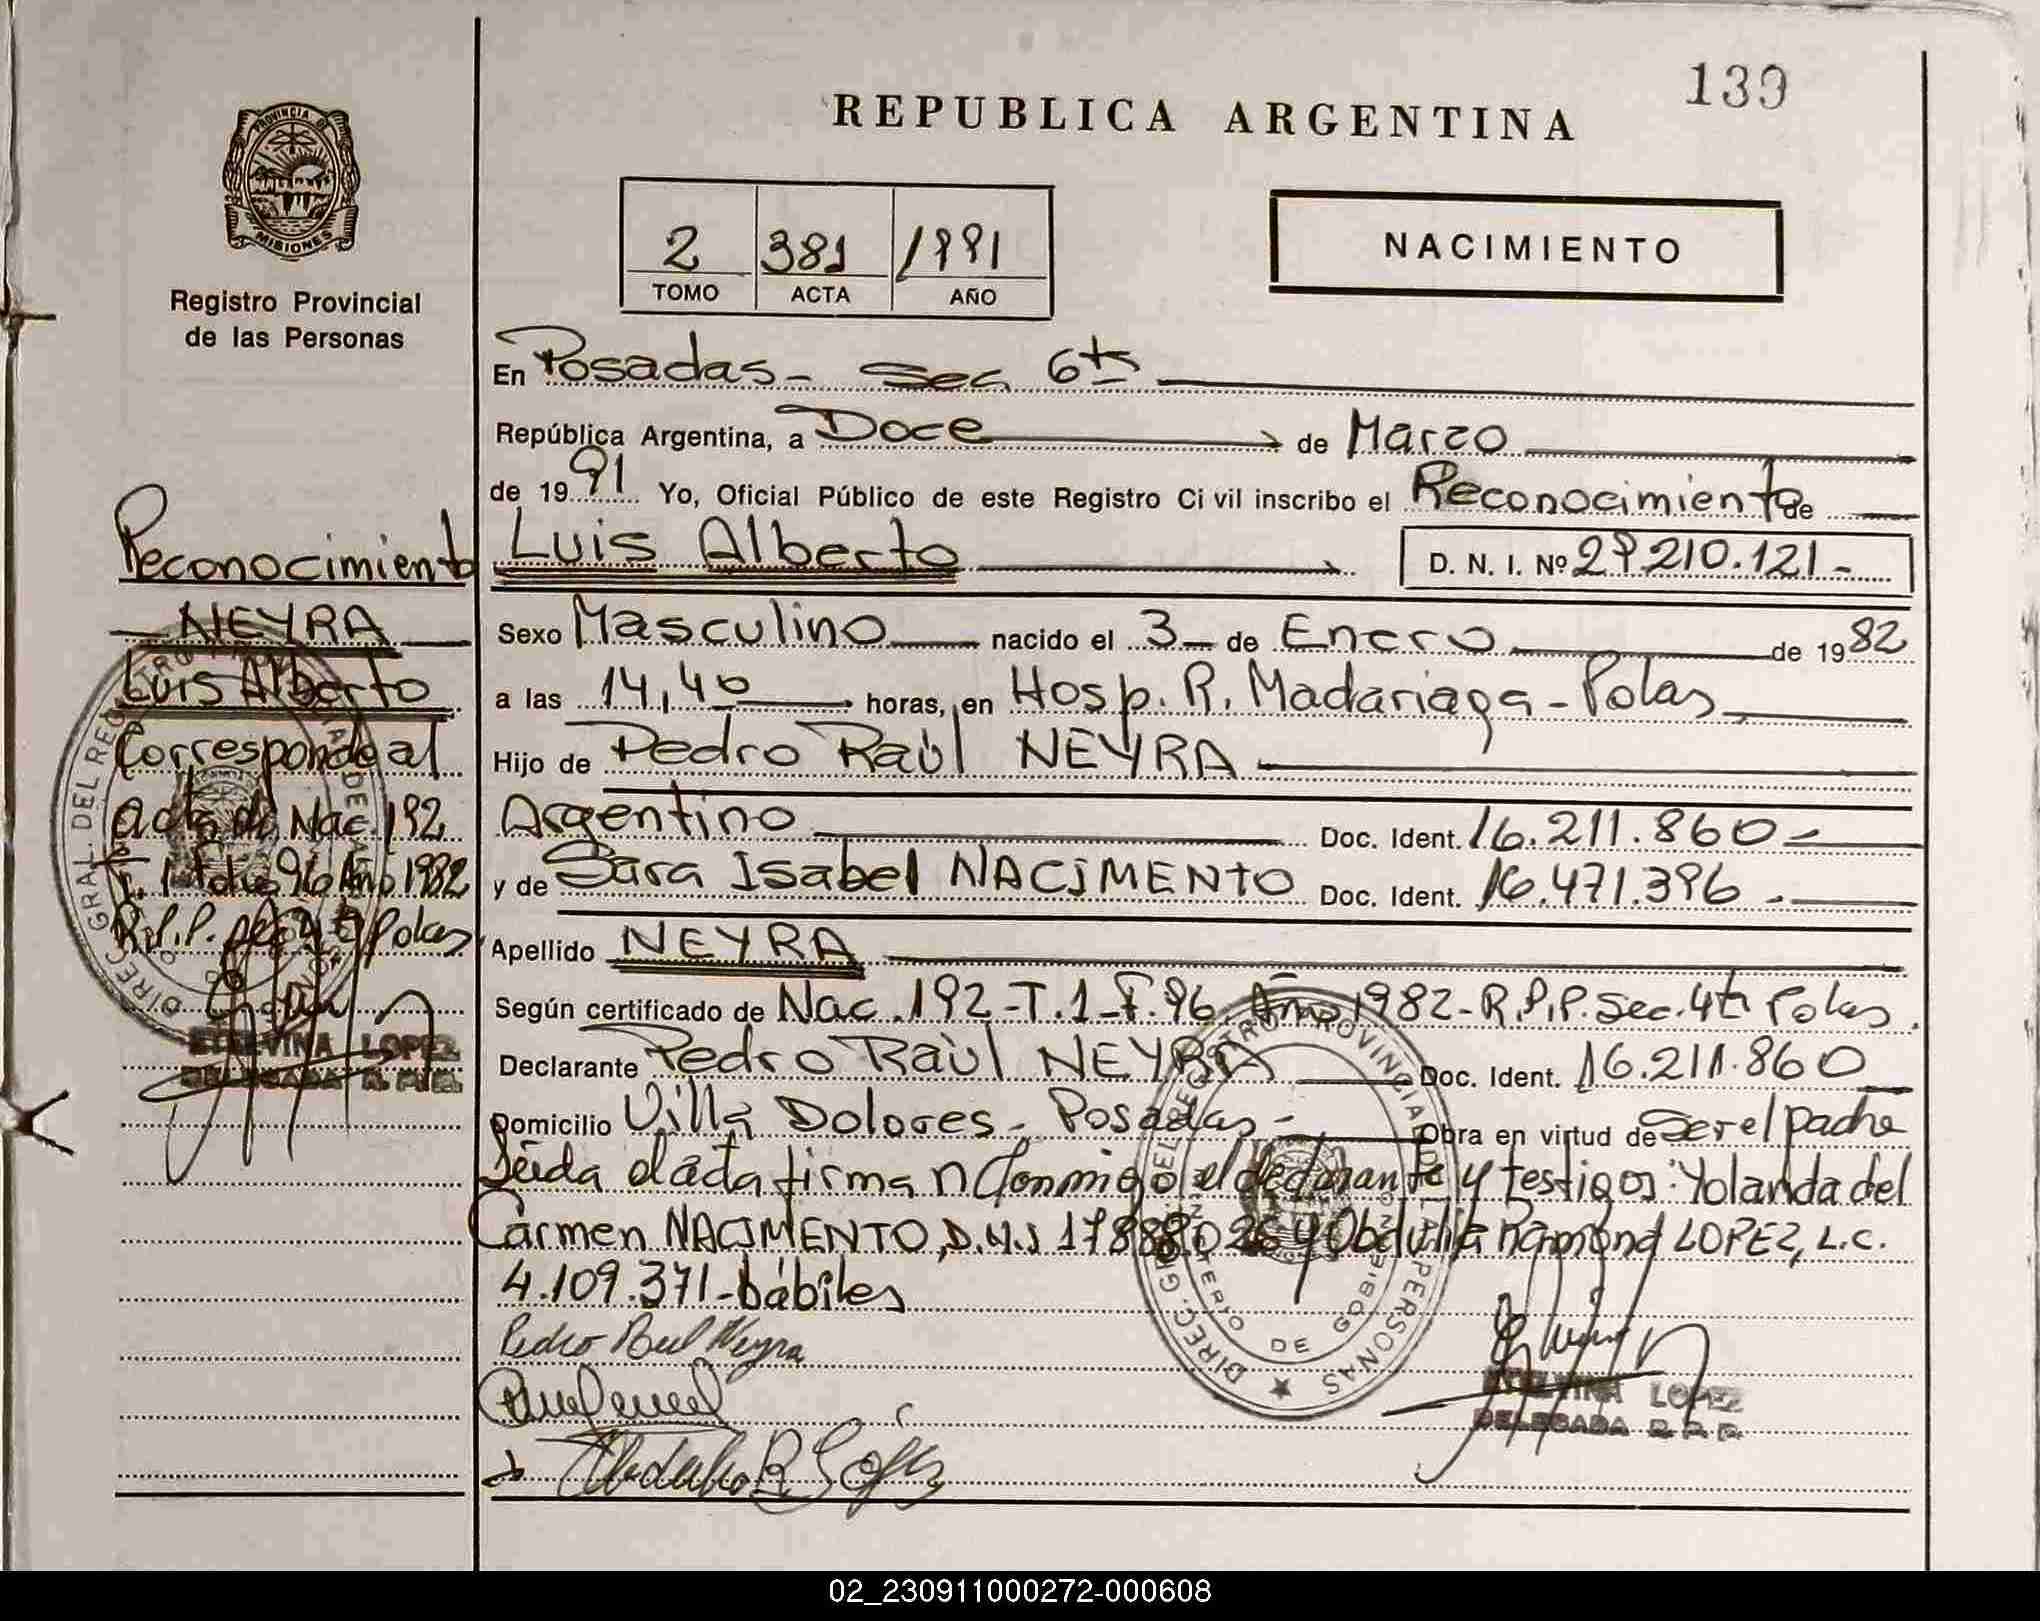 139
REPUBLICA ARGENTINA
PROVINCIA DE
MISIONES
Registro Provincial
de las Personas
2 381 1991
TOMO ACTA AÑO
NACIMIENTO
En Posadas - Sec 6ta
República Argentina, a Doce de Marzo
de 1991 Yo, Oficial Público de este Registro Civil inscribo el Reconocimiento de
Luis Alberto D. N. I. Nº 29.210.121-
Sexo Masculino nacido el 3 de Enero de 1982
a las 14,40 horas, en Hosp. R. Madariaga - Polas
Hijo de Pedro Raúl NEYRA
Argentino Doc. Ident. 16.211.860-
y de Sara Isabel NACIMENTO Doc. Ident. 16.471.396.-
Apellido NEYRA
Según certificado de Nac. 192-T.1-F.96. Año 1982-R.P.P. Sec. 4ta Polas.
Declarante Pedro Raúl NEYRA Doc. Ident. 16.211.860
Domicilio Villa Dolores - Posadas - Obra en virtud de Ser el padre
Leída el acta firman Conmigo el declarante y testigos: Yolanda del
Carmen NACIMENTO, D.N.I 17888026 y Obdulia Ramona LOPEZ, L.C.
4.109.371-hábiles
Pedro Raul Neyra
ETELVINA LOPEZ
DELEGADA R. P. P.
Reconocimiento
NEYRA
Luis Alberto
Corresponde al
acta de Nac. 192
T. 1 Folio 96 Año 1982
R.P.P. Polas
ETELVINA LOPEZ
DELEGADA R. P. P.
02_230911000272-000608